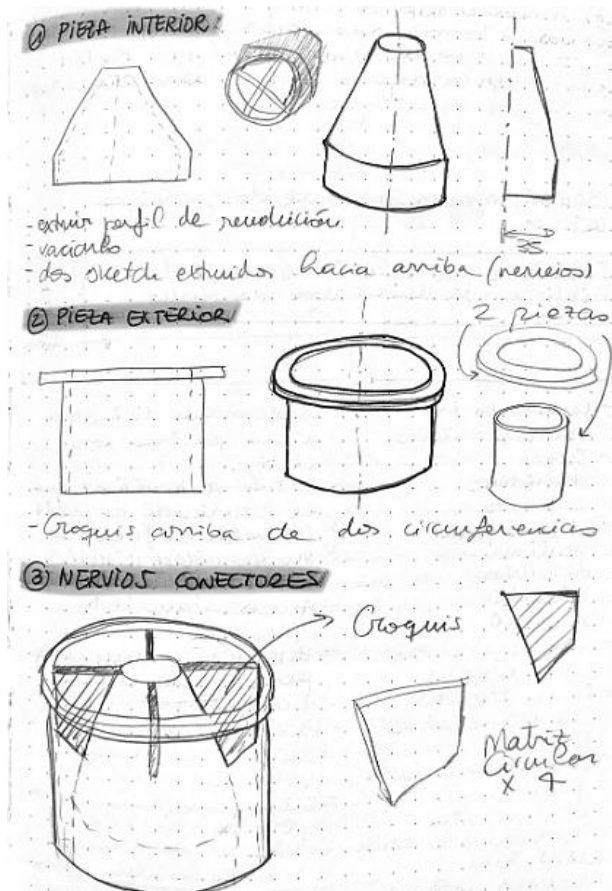 ① PIEZA INTERIOR:
- extruir perfil de revolución.
- vaciarlo
- dos sketch extruidos hacia arriba (nervios)
35
② PIEZA EXTERIOR
2 piezas
- Croquis arriba de dos circunferencias
③ NERVIOS CONECTORES
Croquis
Matriz
Circular
x 4